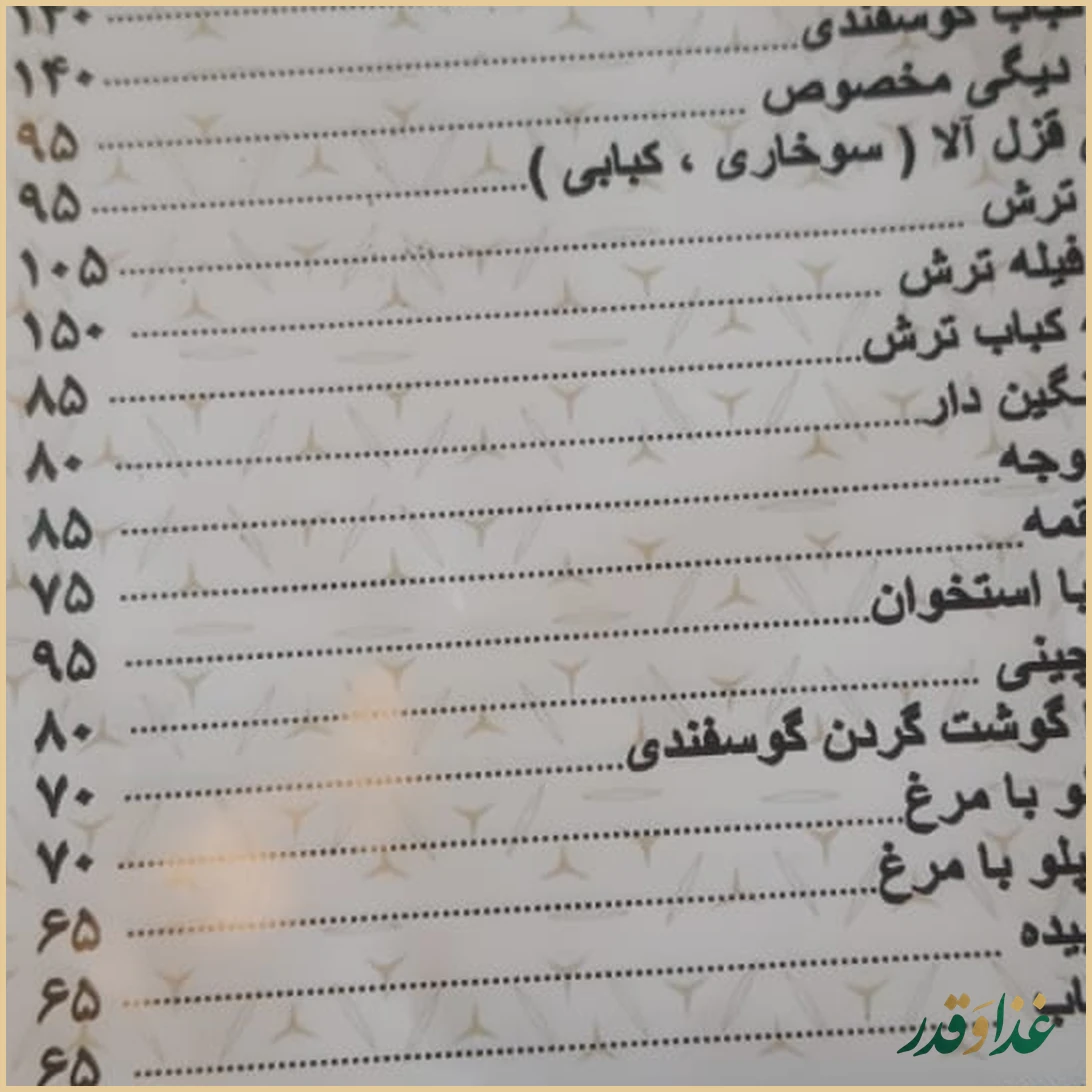 کباب گوسفندی ........ ۱۴۰
دیگی مخصوص ........ ۹۵
قزل آلا ( سوخاری ، کبابی ) ........ ۹۵
ترش ........ ۱۰۵
فیله ترش ........ ۱۵۰
کباب ترش ........ ۸۵
نگین دار ........ ۸۰
وجه ........ ۸۵
مه ........ ۷۵
با استخوان ........ ۹۵
چینی ........ ۸۰
گوشت گردن گوسفندی ........ ۷۰
لو با مرغ ........ ۷۰
پلو با مرغ ........ ۶۵
بیده ........ ۶۵
اب ........ ۶۵
غذا و قدر